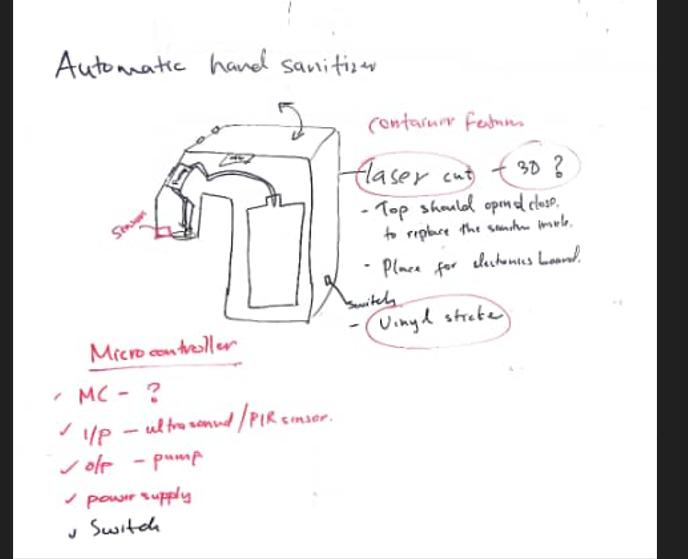 Automatic hand sanitizer
container features
laser cut - 3D ?
- Top should open & close.
to replace the inside.
- Place for electronics board.
Sensor
switch
- Vinyl
Microcontroller
MC - ?
✓ I/p - ultrasound/PIR sensor.
✓ o/p - pump
✓ power supply
✓ Switch